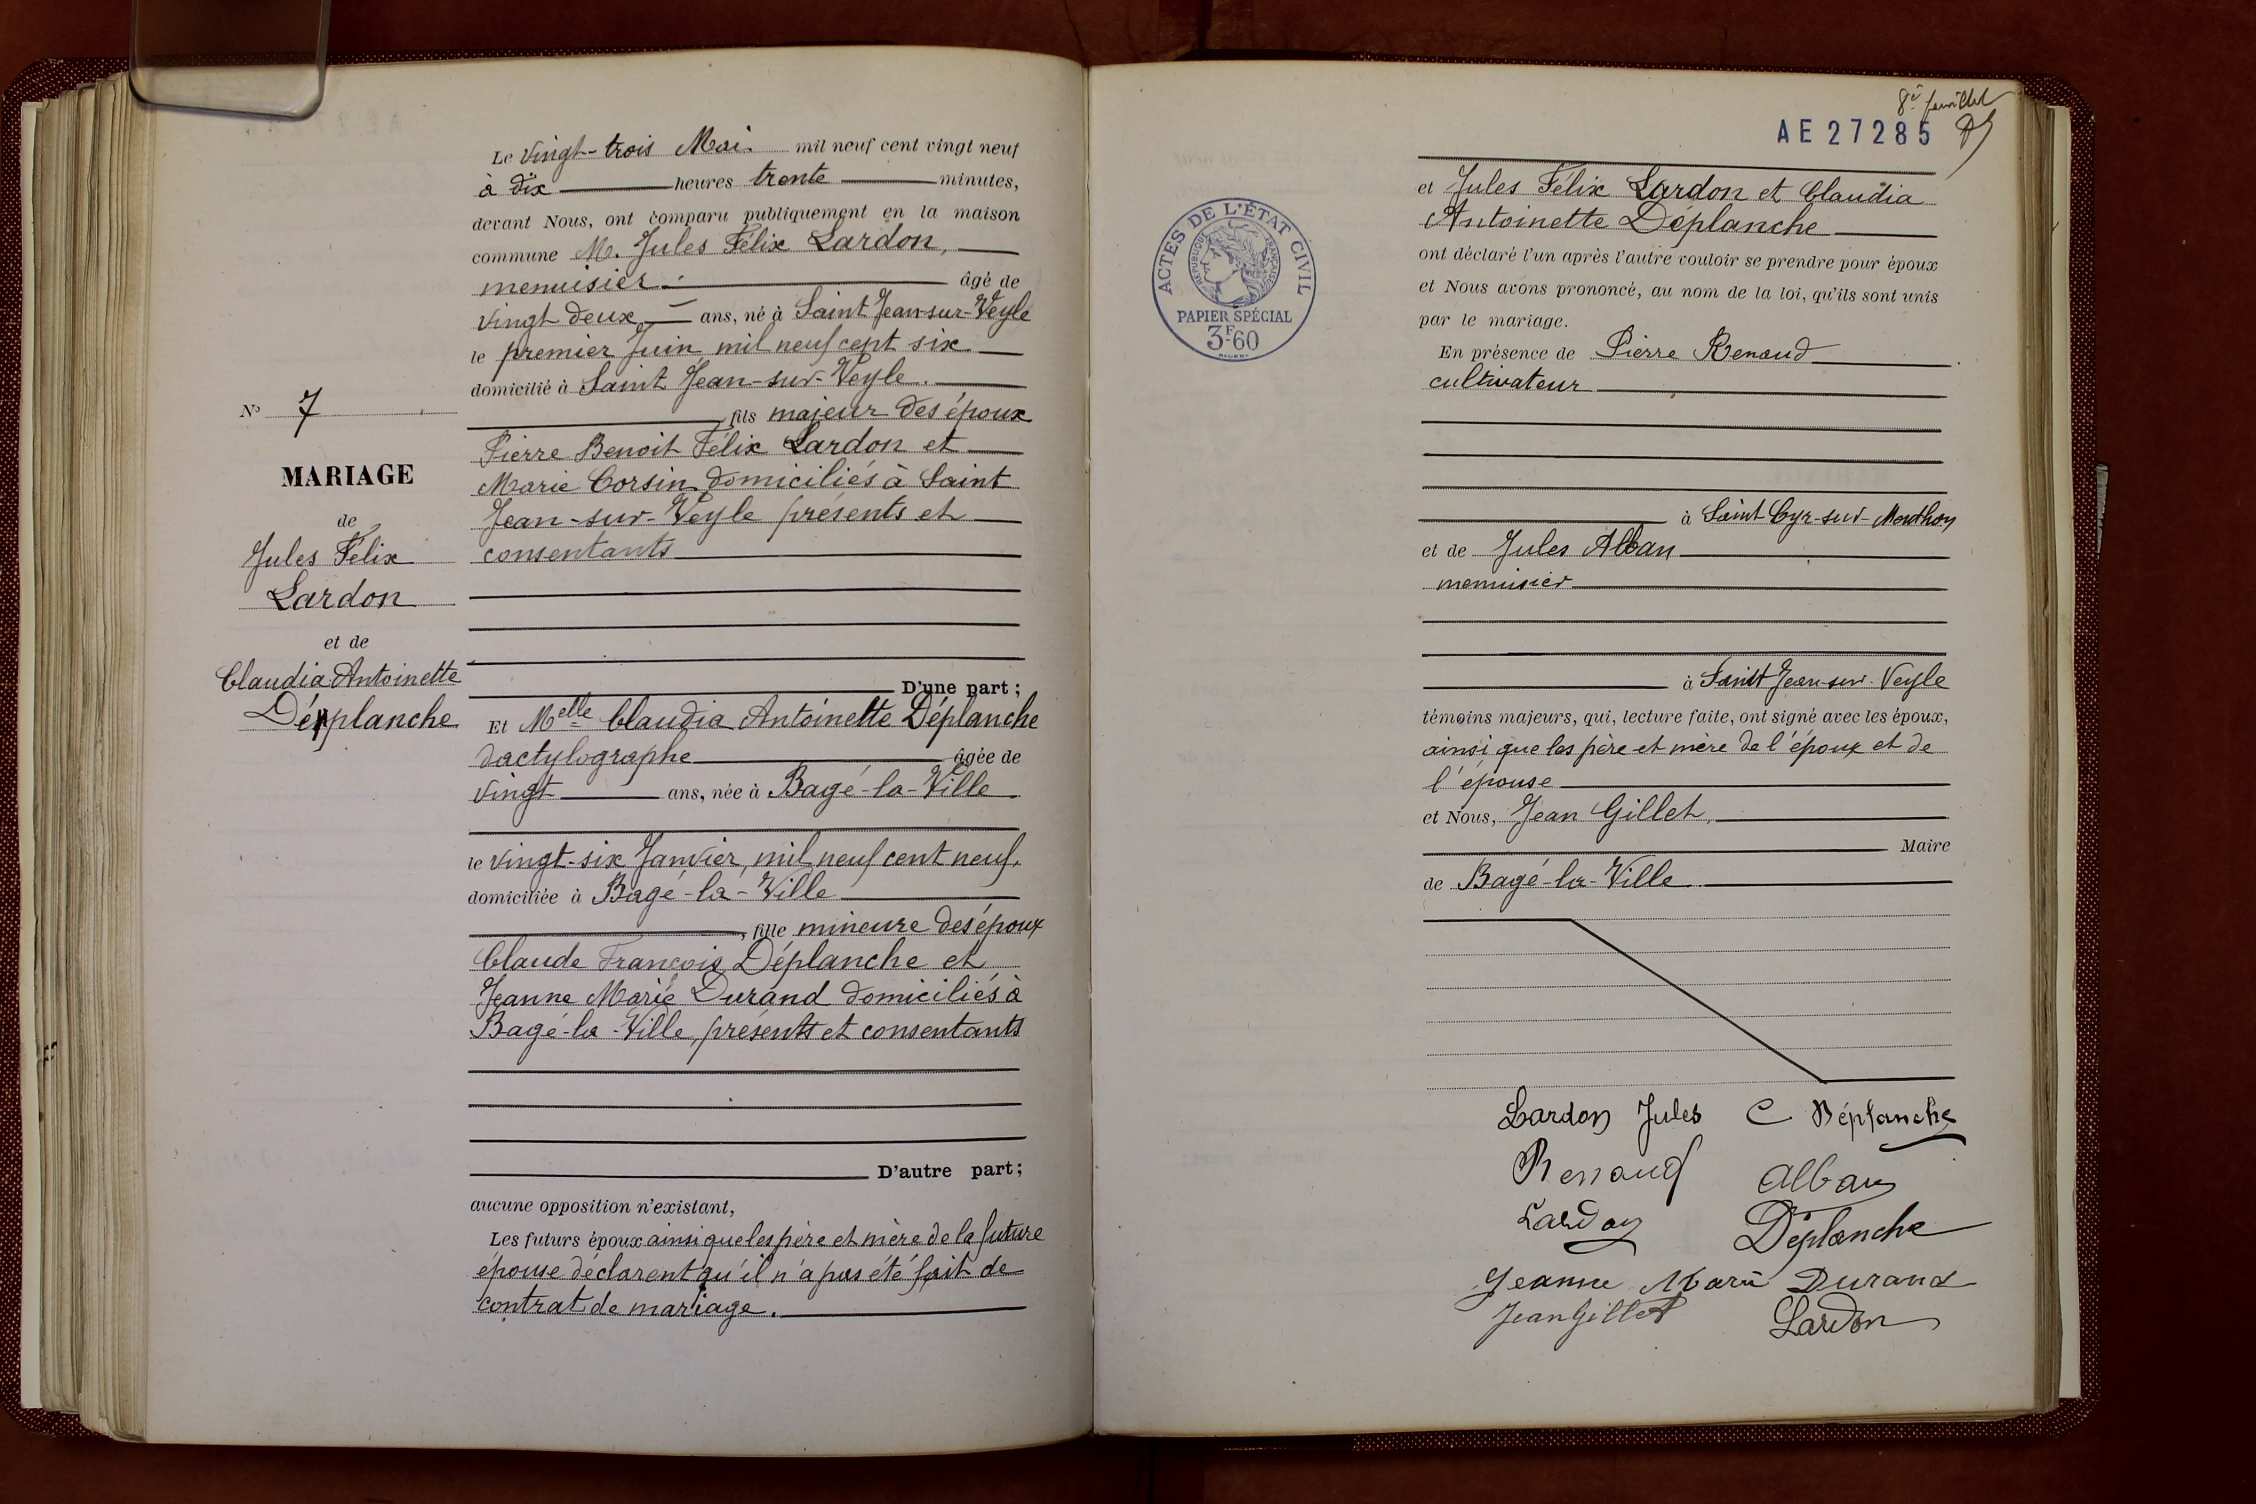 Le vingt-trois Mai mil neuf cent vingt neuf
à dix heures trente minutes,
devant Nous, ont comparu publiquement en la maison
commune M. Jules Félix Lardon,
menuisier âgé de
vingt deux ans, né à Saint Jean-sur-Veyle
le premier Juin mil neuf cept six
domicilié à Saint Jean-sur-Veyle.
fils majeur des époux
Pierre Benoit Félix Lardon et
Marie Corsin domiciliés à Saint
Jean-sur-Veyle présents et
consentants
D'une part ;
Et Melle Claudia Antoinette Déplanche
dactylographe âgée de
vingt ans, née à Bagé-la-Ville
le vingt-six Janvier, mil neuf cent neuf,
domiciliée à Bagé-la-Ville
, fille mineure des époux
Claude François Déplanche et
Jeanne Marie Durand domiciliés à
Bagé-la-Ville, présents et consentants
D'autre part ;
aucune opposition n'existant,
Les futurs époux ainsi que les père et mère de la future
épouse déclarent qu'il n'a pas été fait de
contrat de mariage.
No 7
MARIAGE
de
Jules Félix
Lardon
et de
Claudia Antoinette
Déplanche
8e feuillet
AE 27285
ACTES DE L'ÉTAT CIVIL
RÉPUBLIQUE FRANÇAISE
PAPIER SPÉCIAL
3F60
et Jules Félix Lardon et Claudia
Antoinette Déplanche
ont déclaré l'un après l'autre vouloir se prendre pour époux
et Nous avons prononcé, au nom de la loi, qu'ils sont unis
par le mariage.
En présence de Pierre Renaud
cultivateur
à Saint Cyr-sur-Menthon
et de Jules Alban
menuisier
à Saint Jean-sur-Veyle
témoins majeurs, qui, lecture faite, ont signé avec les époux,
ainsi que les père et mère de l'époux et de
l'épouse
et Nous, Jean Gillet,
Maire
de Bagé-la-Ville
Lardon Jules C Déplanche
Renaud Alban
Lardon Déplanche
Jeanne Marie Durand
Jean Gillet Lardon